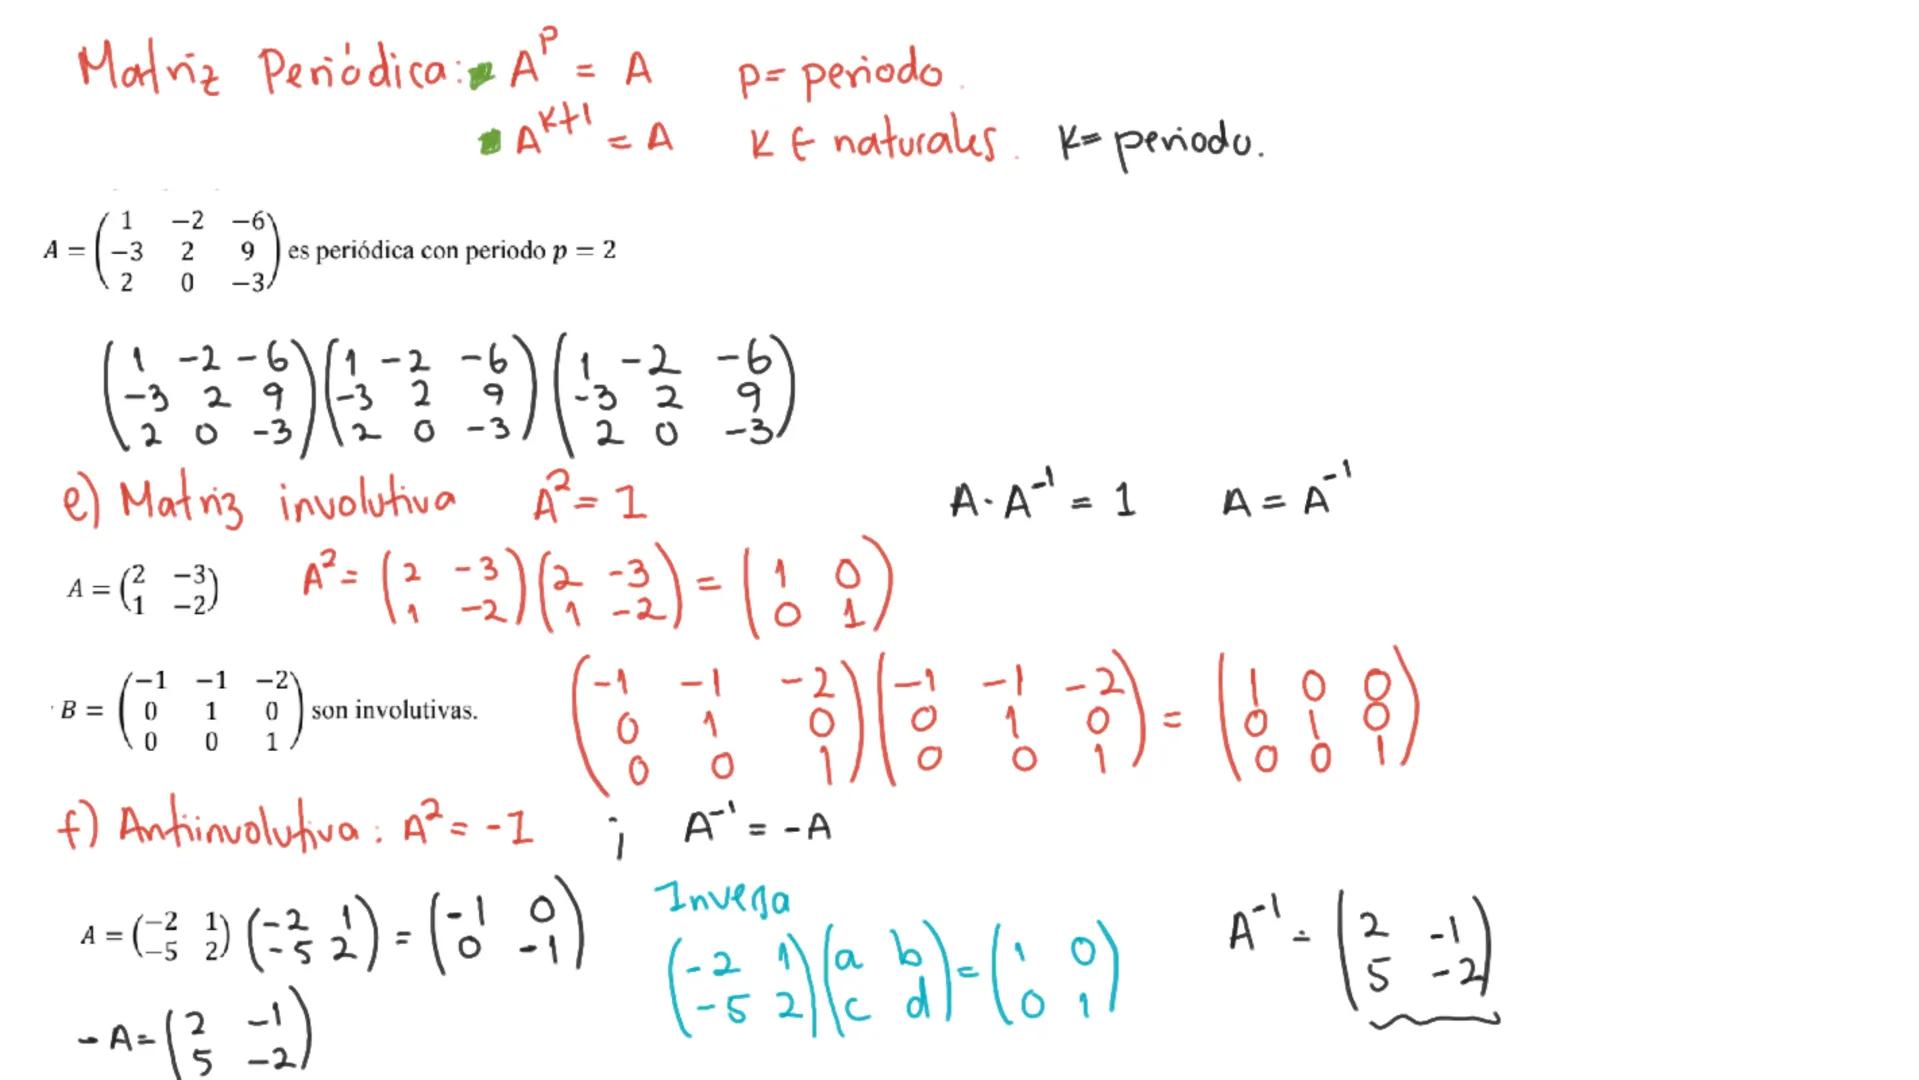 Matriz Periódica: A^p = A p = periodo.
A^{k+1} = A k ∈ naturales. k = periodo.
A = (1 −2 −6
−3 2 9
2 0 −3) es periódica con periodo p = 2
(1 -2 -6) (1 -2 -6) (1 -2 -6)
(-3 2 9) (-3 2 9) (-3 2 9)
(2 0 -3) (2 0 -3) (2 0 -3)
e) Matriz involutiva A² = I A · A⁻¹ = 1 A = A⁻¹
A = (2 −3
1 −2) A² = (2 -3
1 -2) (2 -3
1 -2) = (1 0
0 1)
B = (−1 −1 −2
0 1 0
0 0 1) son involutivas.
(-1 -1 -2) (-1 -1 -2) = (1 0 0)
(0 1 0) (0 1 0) (0 1 0)
(0 0 1) (0 0 1) (0 0 1)
f) Antiinvolutiva: A² = -I ; A⁻¹ = -A
A = (−2 1
−5 2) (-2 1
-5 2) = (-1 0
0 -1)
- A = (2 -1
5 -2)
Inversa
(-2 1) (a b) = (1 0)
(-5 2) (c d) (0 1)
A⁻¹ = (2 -1
5 -2)